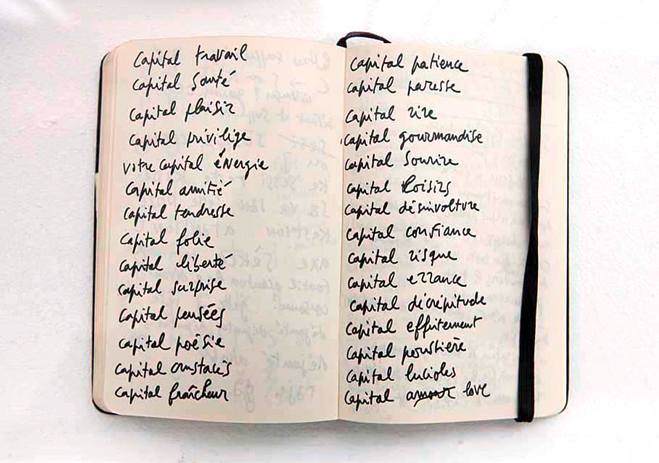 capital travail
capital santé
capital plaisir
capital privilige
votre capital énergie
capital amitié
capital tendresse
capital folie
capital liberté
capital surprise
capital pensées
capital poésie
capital crustacés
capital fraîcheur
capital patience
capital paresse
capital rire
capital gourmandise
capital sourire
capital loisirs
capital désinvolture
capital confiance
capital risque
capital errance
capital décrépitude
capital effritement
capital poustière
capital lucioles
capital amour love